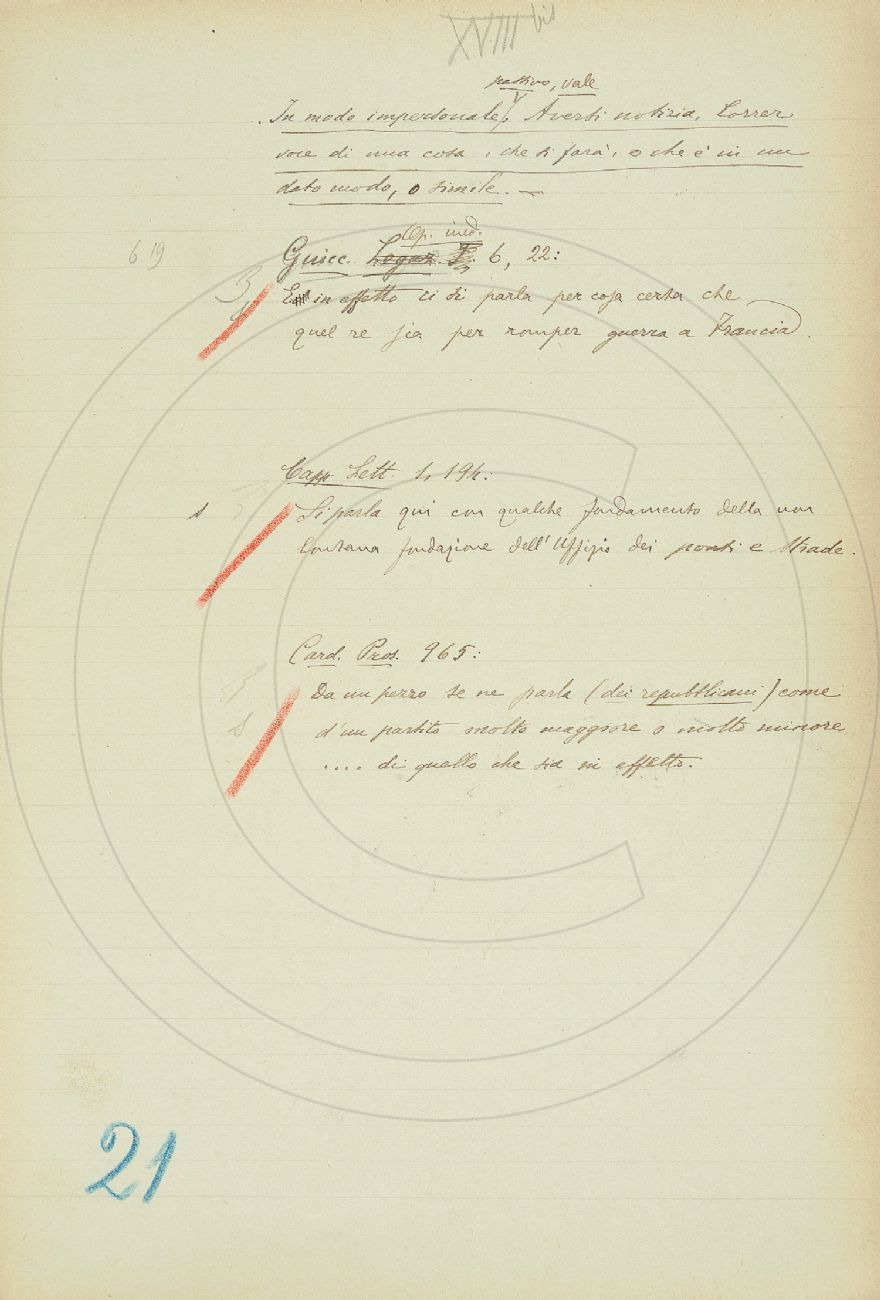 XVIII bis
passivo, vale
In modo impersonale, Aversi notizia, Correr
voce di una cosa, che si farà, o che è in un
dato modo, o simile. —
Op. ined.
6 19 Guicc. Legaz. 6, 22:
3
E in effetto ci si parla per cosa certa che
quel re sia per romper guerra a Francia.
Capp. Lett. 1, 194:
s Si parla qui con qualche fondamento della non
lontana fondazione dell'Uffizio dei ponti e Strade.
Card. Pros. 965:
Da un pezzo se ne parla (dei repubblicani) come
s d'un partito molto maggiore o molto minore
.... di quello che sia in effetto.
21